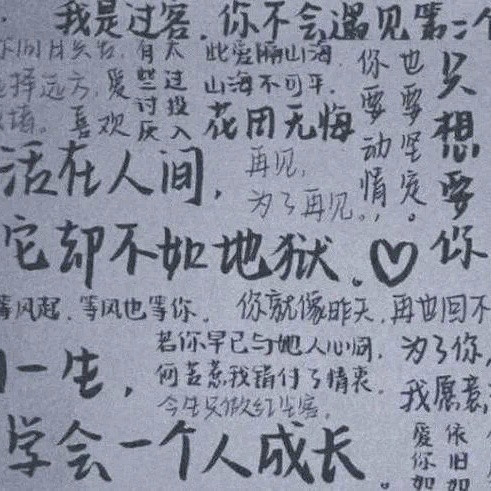 我是过客.你不会遇见第二个
有些讨厌
太过投入
此爱隔山海,
山海不可平.
花田无悔
你要动情,
也要坚定。
只想要你
选择远方.爱
喜欢
活在人间,
再见,
为了再见。
它却不如地狱.♡
等风起,等风也等你.
你就像昨天,再也回不
一生,
若你早已与她人心悯,
何苦惹我错付了情衷.
今生只做红尘客.
为了你,
我愿意
学会一个人成长。
爱你如
依旧如